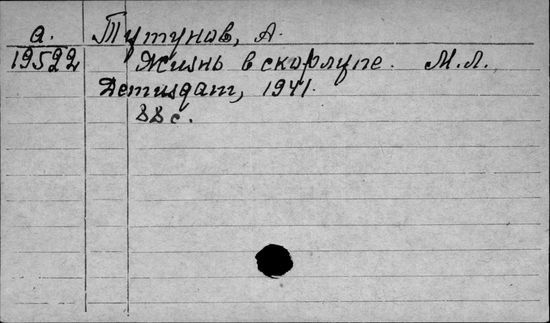 а. Тутунов, А.
19522 Жизнь в скорлупе. М.Л.,
Детиздат, 1941.
88 с.